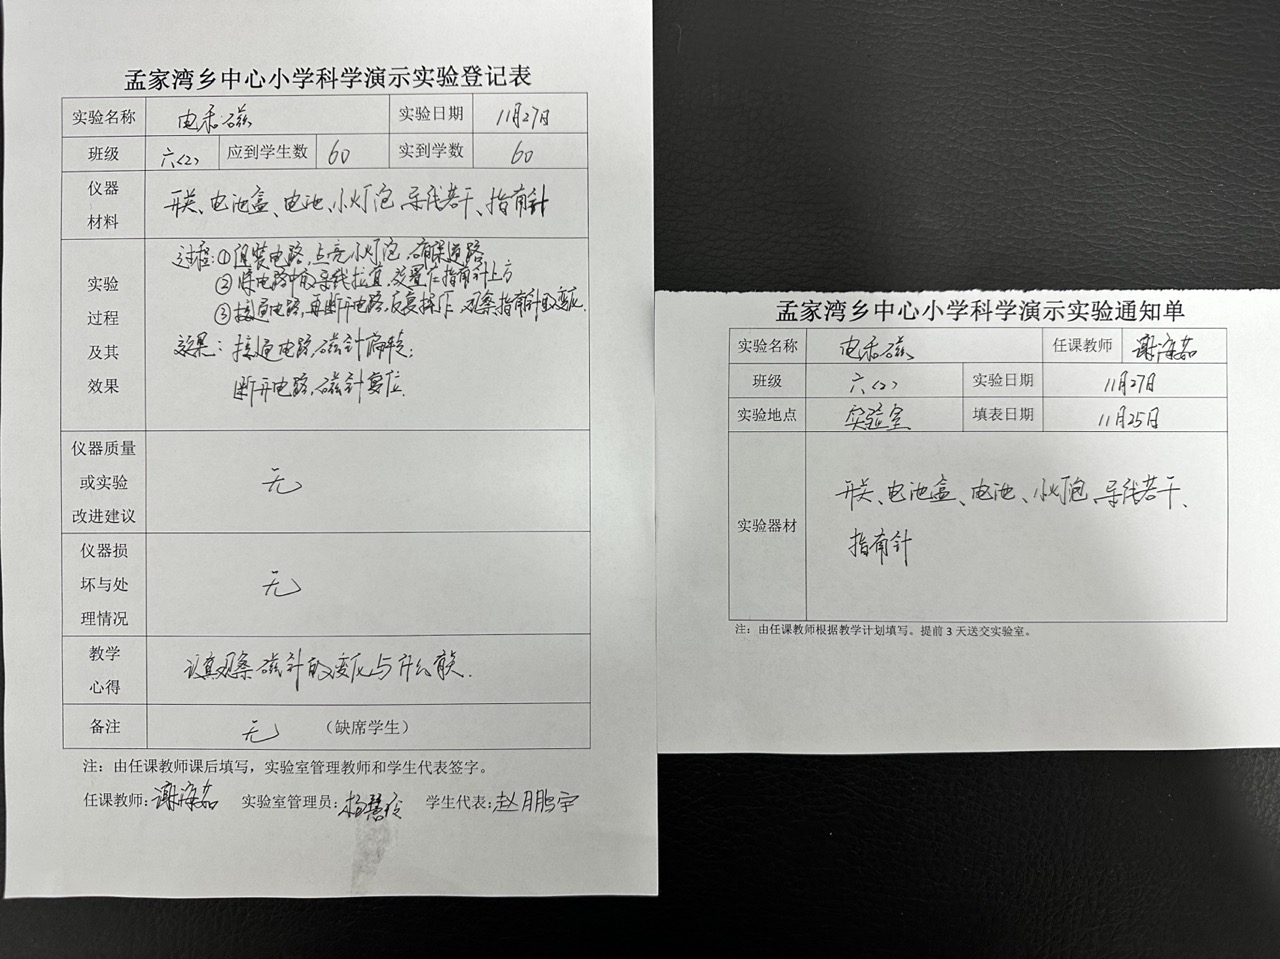 孟家湾乡中心小学科学演示实验登记表
实验名称 电和磁 实验日期 11月27日
班级 六(2) 应到学生数 60 实到学数 60
仪器材料 开关、电池盒、电池、小灯泡、导线若干、指南针
实验过程及其效果
过程:①组装电路,点亮小灯泡,确保通路
②将电路中的导线拉直,放置在指南针上方
③接通电路,再断开电路,反复操作,观察指南针的变化.
效果:接通电路,磁针偏转;
断开电路,磁针复位.
仪器质量或实验改进建议 无
仪器损坏与处理情况 无
教学心得 认真观察磁针的变化与什么有关.
备注 无 (缺席学生)
注:由任课教师课后填写,实验室管理教师和学生代表签字。
任课教师:谢海茹 实验室管理员:杨慧玲 学生代表:赵月鹏宇
孟家湾乡中心小学科学演示实验通知单
实验名称 电和磁 任课教师 谢海茹
班级 六(2) 实验日期 11月27日
实验地点 实验室 填表日期 11月25日
实验器材 开关、电池盒、电池、小灯泡、导线若干、
指南针
注:由任课教师根据教学计划填写。提前3天送交实验室。